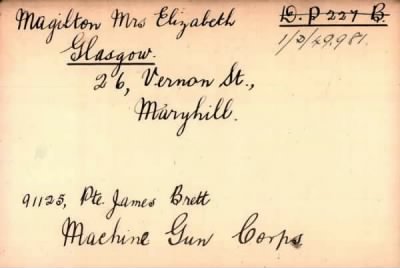 Magilton Mrs Elizabeth
D.P 227 B.
1/D/49981.
Glasgow.
26, Vernon St.,
Maryhill.
91125, Pte. James Brett
Machine Gun Corps